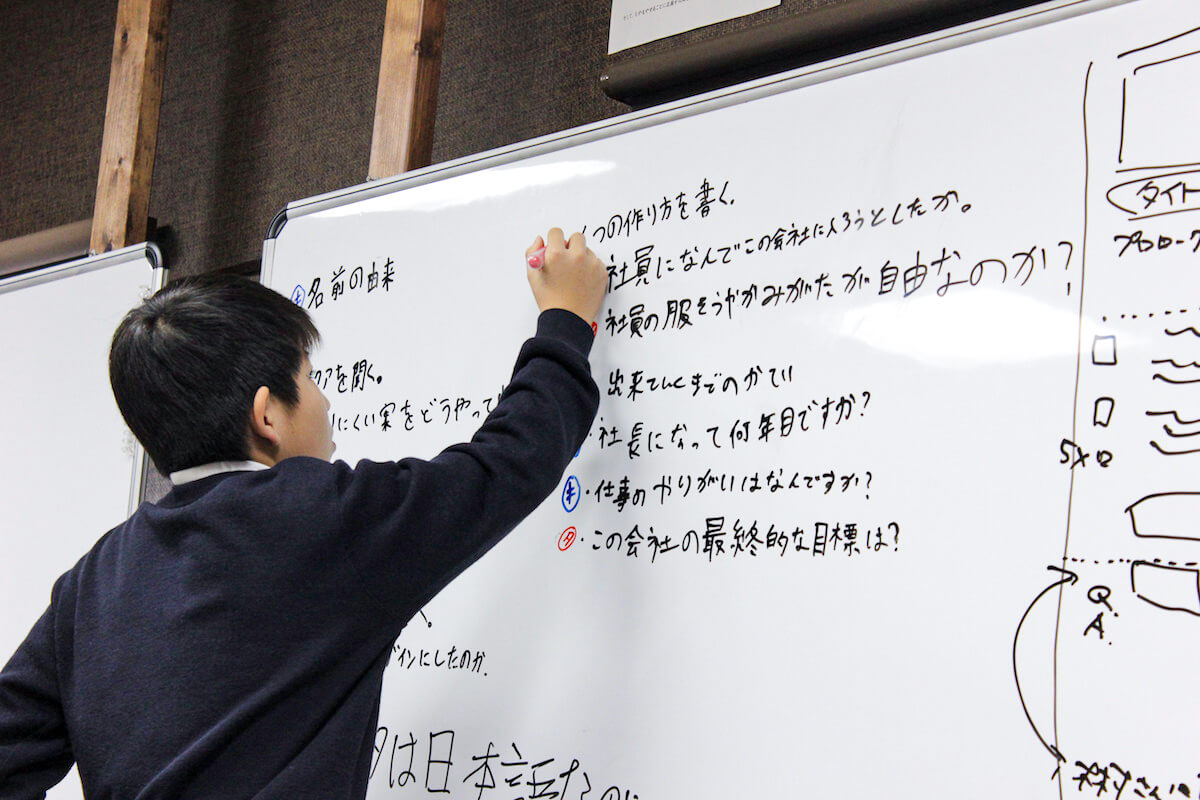 キ 名前の由来
アを聞く。
にくい実をどうやって
インにしたのか.
は日本語なの
つの作り方を書く.
社員になんでこの会社に入ろうとしたか。
社員の服そうやかみがたが自由なのか?
出来ていくまでのかてい
・社長になって何年目ですか?
キ・仕事のやりがいはなんですか?
タ・この会社の最終的な目標は?
タイト
プロローグ
5×ロ
Q.
A.